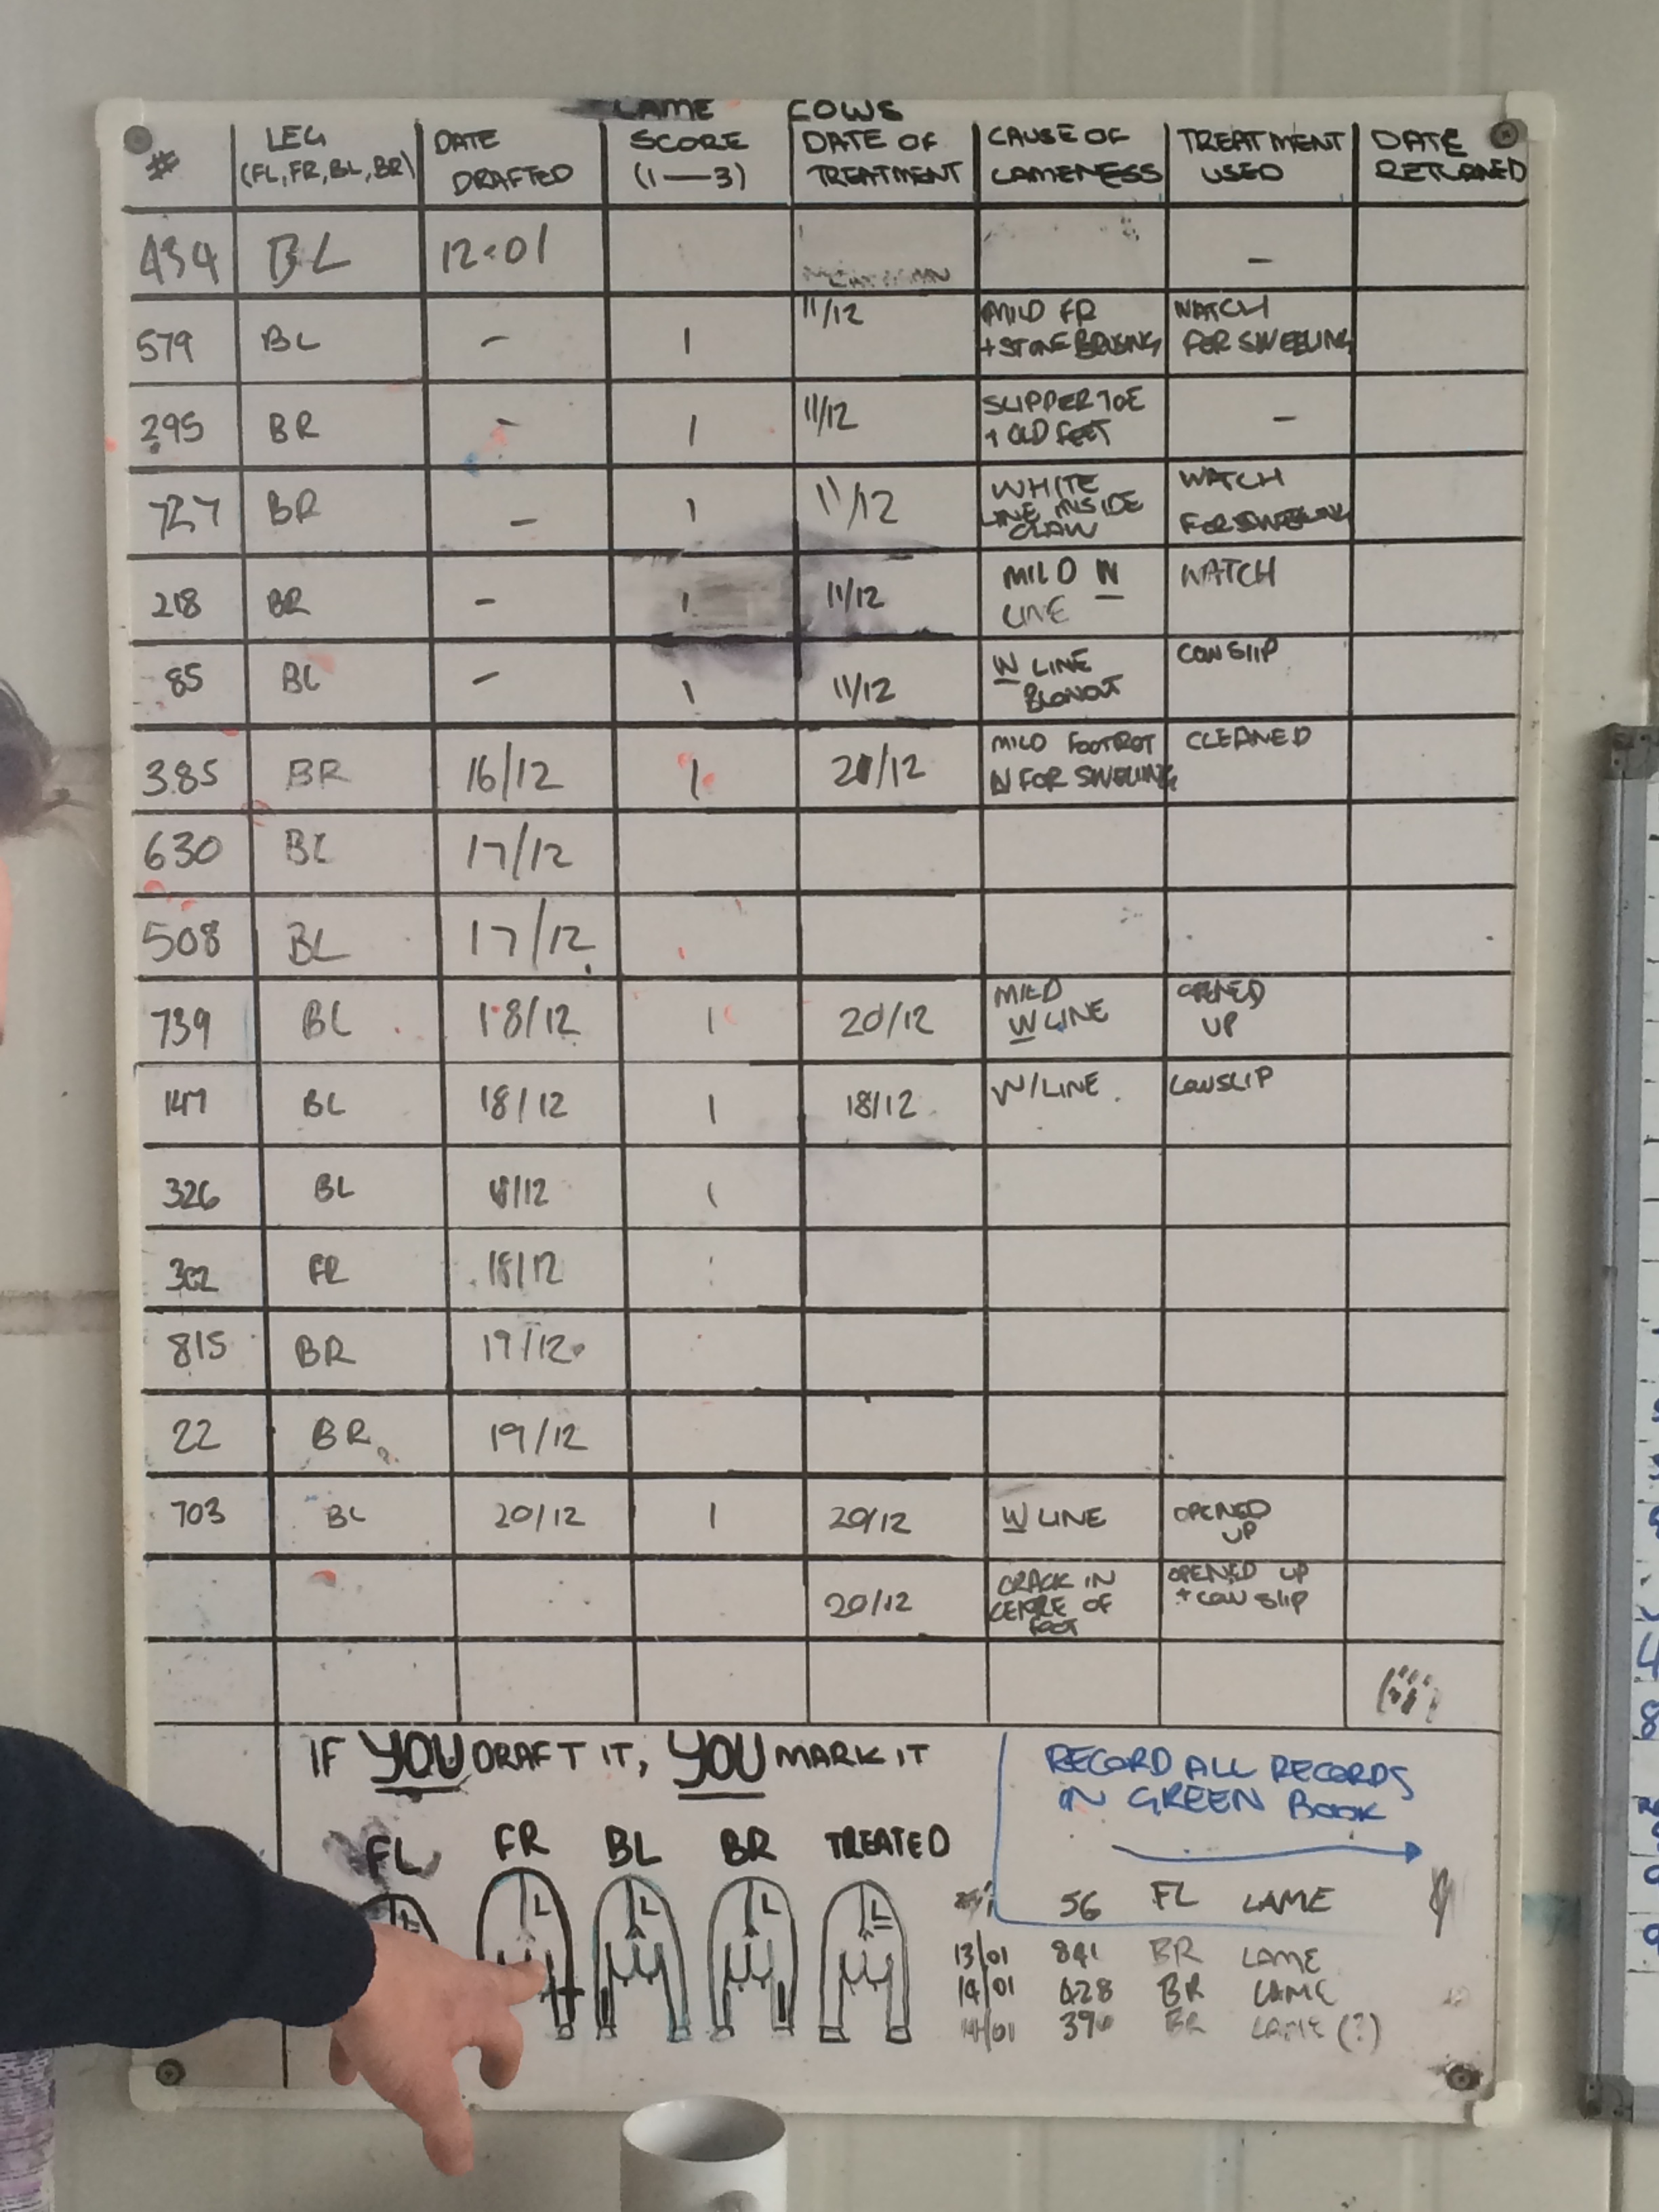 LAME COWS
# LEG (FL, FR, BL, BR) DATE DRAFTED SCORE (1—3) DATE OF TREATMENT CAUSE OF LAMENESS TREATMENT USED DATE RETURNED
434 BL 12-01 –
579 BL – 1 11/12 MILD FR + STONE BRUSING WATCH FOR SWELLING
295 BR – 1 11/12 SLIPPER TOE + OLD FEET –
727 BR – 1 11/12 WHITE LINE INSIDE CLAW WATCH FOR SWELLING
218 BR – 1 11/12 MILD W LINE WATCH
85 BL – 1 11/12 W LINE BLOWOUT COWSLIP
385 BR 16/12 1 21/12 MILD FOOTROT W FOR SWELLING CLEANED
630 BL 17/12
508 BL 17/12
739 BL 18/12 1 20/12 MILD W LINE OPENED UP
147 BL 18/12 1 18/12 W/LINE COWSLIP
326 BL 18/12 1
302 FR 18/12
815 BR 19/12
22 BR 19/12
703 BL 20/12 1 20/12 W LINE OPENED UP
20/12 CRACK IN CENTRE OF FOOT OPENED UP + COWSLIP
IF YOU DRAFT IT, YOU MARK IT
RECORD ALL RECORDS
IN GREEN BOOK
FL FR BL BR TREATED
L L L L L
56 FL LAME
13/01 841 BR LAME
14/01 428 BR LAME
14/01 BR LAME (?)